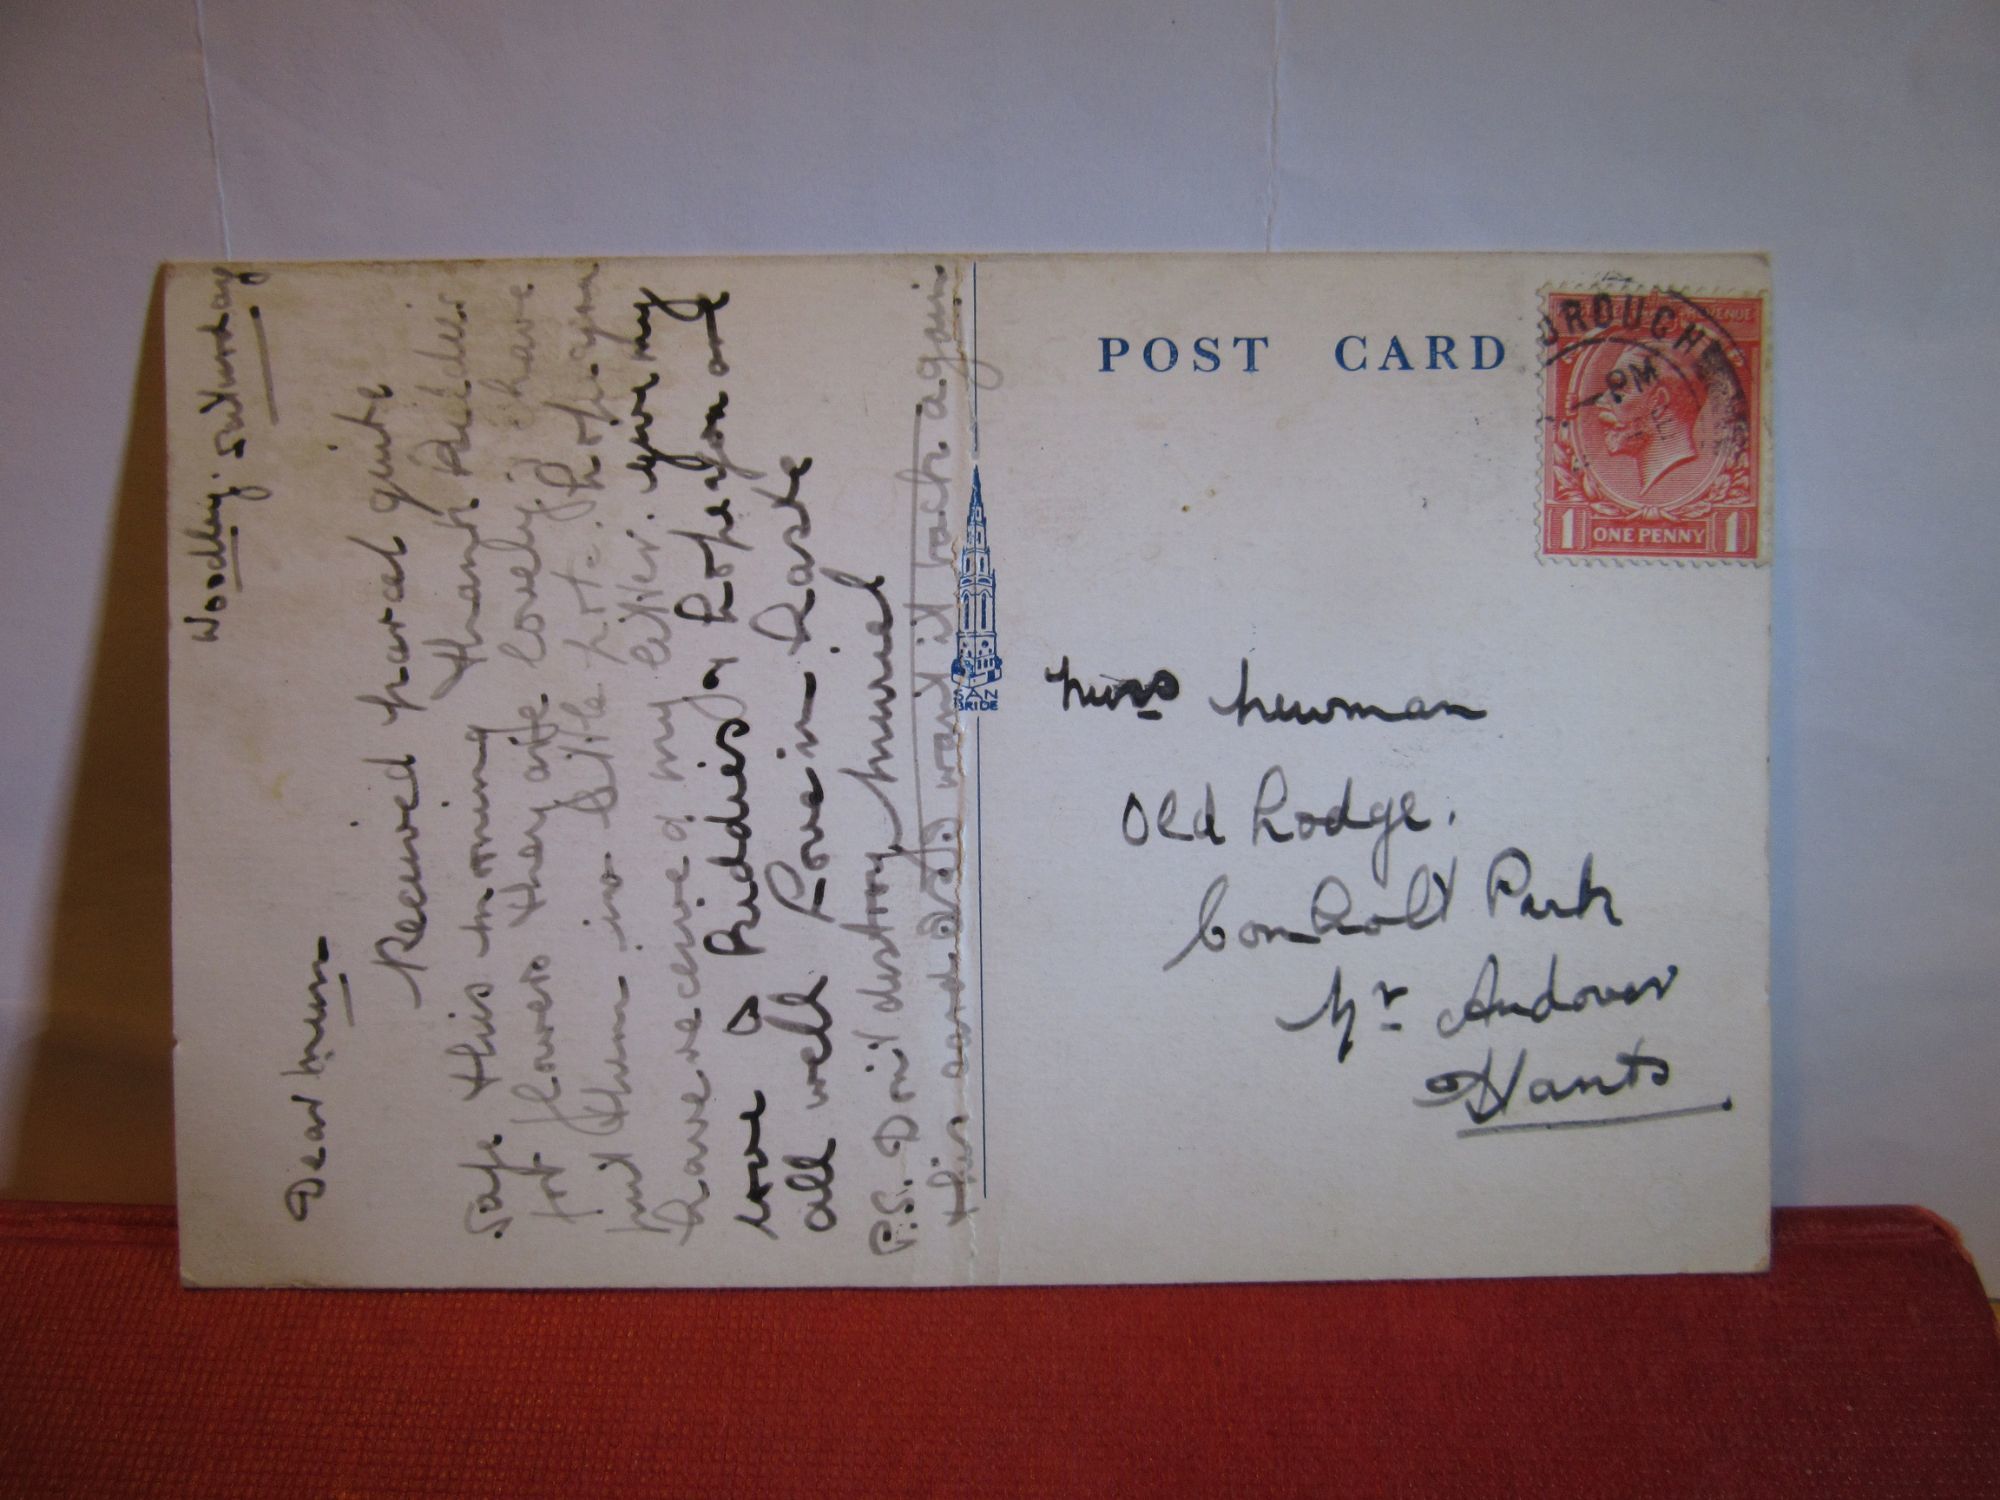 Woodley. Saturday
Dear Mum
Received parcel quite
safe this morning thank Kiddies
for flowers they are lovely i have
put them in little pot. I hope you
have receive d my letter. give my
love to Kiddies, & hope you are
all well. Love in haste
Muriel
P.S. Don't destroy
this card as I want it back again.
POST CARD
SAN
BRIDE
OROUGH
PM
REVENUE
1 ONE PENNY 1
Mrs Newman
Old Lodge.
Conholt Park
Nr Andover
Hants